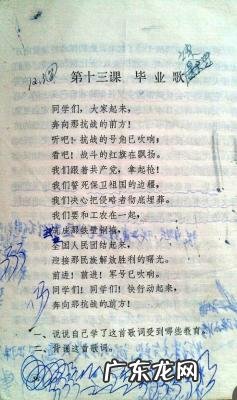 第十三课 毕业歌
同学们，大家起来，
奔向那抗战的前方！
听吧！抗战的号角已吹响，
看吧！战斗的红旗在飘扬。
我们跟着共产党，拿起枪！
我们誓死保卫祖国的边疆，
我们决心把侵略者彻底埋葬。
我们要和工农在一起，
全国人民团结起来，
迎接那民族解放胜利的曙光。
前进！前进！军号已吹响。
同学们！同学们！快行动起来，
奔向那抗战的前方！
一、说说自己学了这首歌词受到哪些教育。
二、背诵这首歌词。
广东龙网